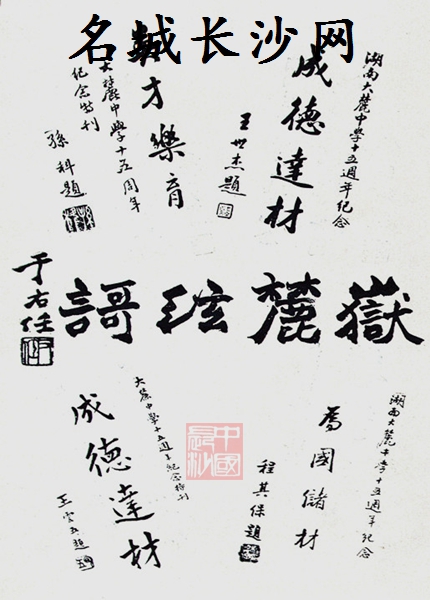 名城长沙网
湖南大麓中學十五週年紀念
成德達材
王世杰題
才樂育
大麓中學十五周年
紀念特刊
孫科題
嶽麓絃謌
于右任
湖南大麓中學十五週年紀念
為國儲材
程其保題
中國長沙
大麓中學十五週年紀念特刊
成德達材
王雲五題